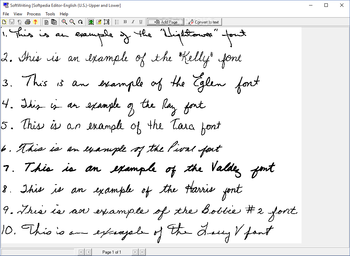 SoftWriting [Softpedia Editor-English (U.S.)-Upper and Lower]
File View Process Tools Help
Add Page Convert to text
1. This is an example of the "Lightness" font
2. This is an example of the "Kelly" font
3. This is an example of the Eglen font
4. This is an example of the Ray font
5. This is an example of the Tara font
6. This is an example of the font
7. This is an example of the Valdez font
8. This is an example of the Harris font
9. This is an example of the Bobbie #2 font
10. This is an example of the V font
Page 1 of 1